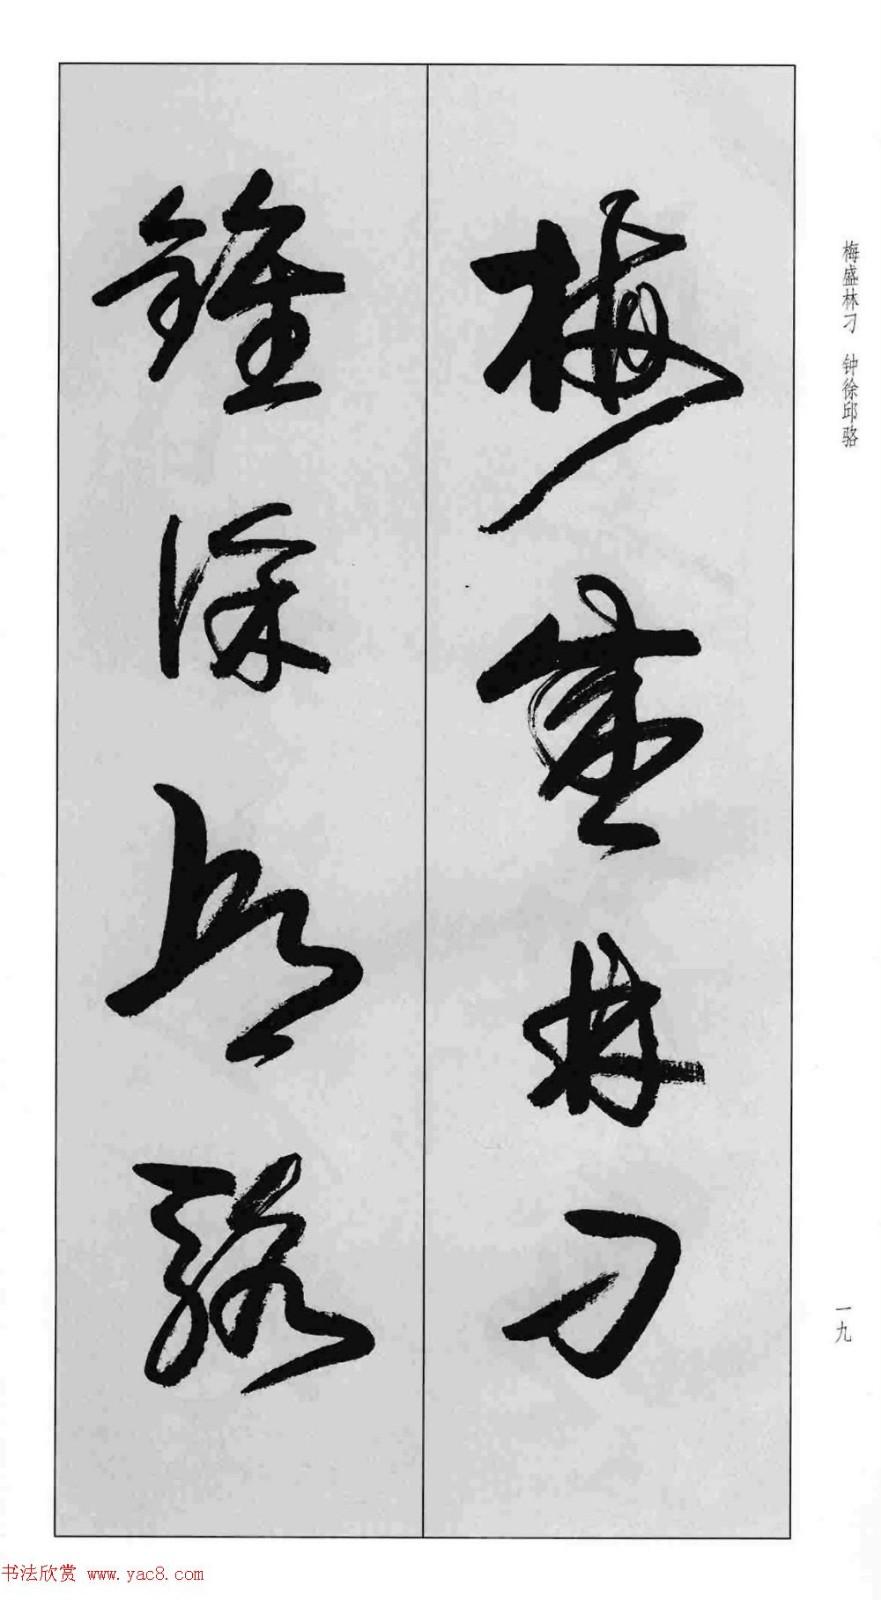 梅盛林刁
鍾徐邱駱
梅盛林刁 钟徐邱骆
一九
书法欣赏 www.yac8.com